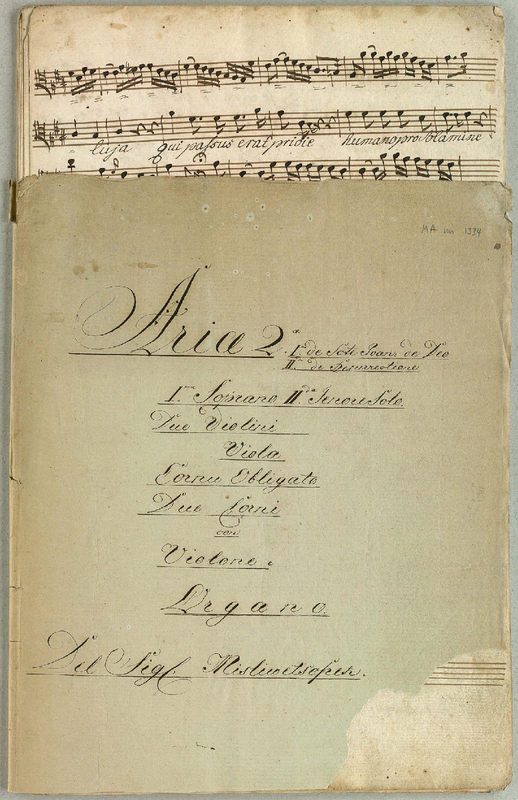 luja qui passus erat pridie humano pro volamine
MA un 1334
Ariæ 2.ᵃ
I.ᵐᵃ de Scte Joan: de Deo
II.ᵈᵃ de Resurrectione
I.ᵐᵃ Soprano II.ᵈᵃ Tenore Solo.
Due Violini
Viola
Cornu Obligato
Due Corni
con
Violone e
Organo.
Del Sigl Misliwetschek.